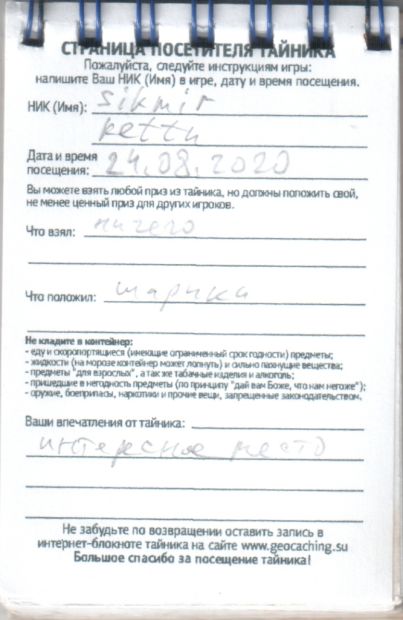 СТРАНИЦА ПОСЕТИТЕЛЯ ТАЙНИКА
Пожалуйста, следуйте инструкциям игры:
напишите Ваш НИК (Имя) в игре, дату и время посещения.
НИК (Имя): sikmir
kettu
Дата и время
посещения: 24.08.2020
Вы можете взять любой приз из тайника, но должны положить свой,
не менее ценный приз для других игроков.
Что взял: ничего
Что положил: шарики
Не кладите в контейнер:
- еду и скоропортящиеся (имеющие ограниченный срок годности) предметы;
- жидкости (на морозе контейнер может лопнуть) и сильно пахнущие вещества;
- предметы "для взрослых", а так же табачные изделия и алкоголь;
- пришедшие в негодность предметы (по принципу "дай вам Боже, что нам негоже");
- оружие, боеприпасы, наркотики и прочие вещи, запрещенные законодательством.
Ваши впечатления от тайника:
интересное место
Не забудьте по возвращении оставить запись в
интернет-блокноте тайника на сайте www.geocaching.su
Большое спасибо за посещение тайника!